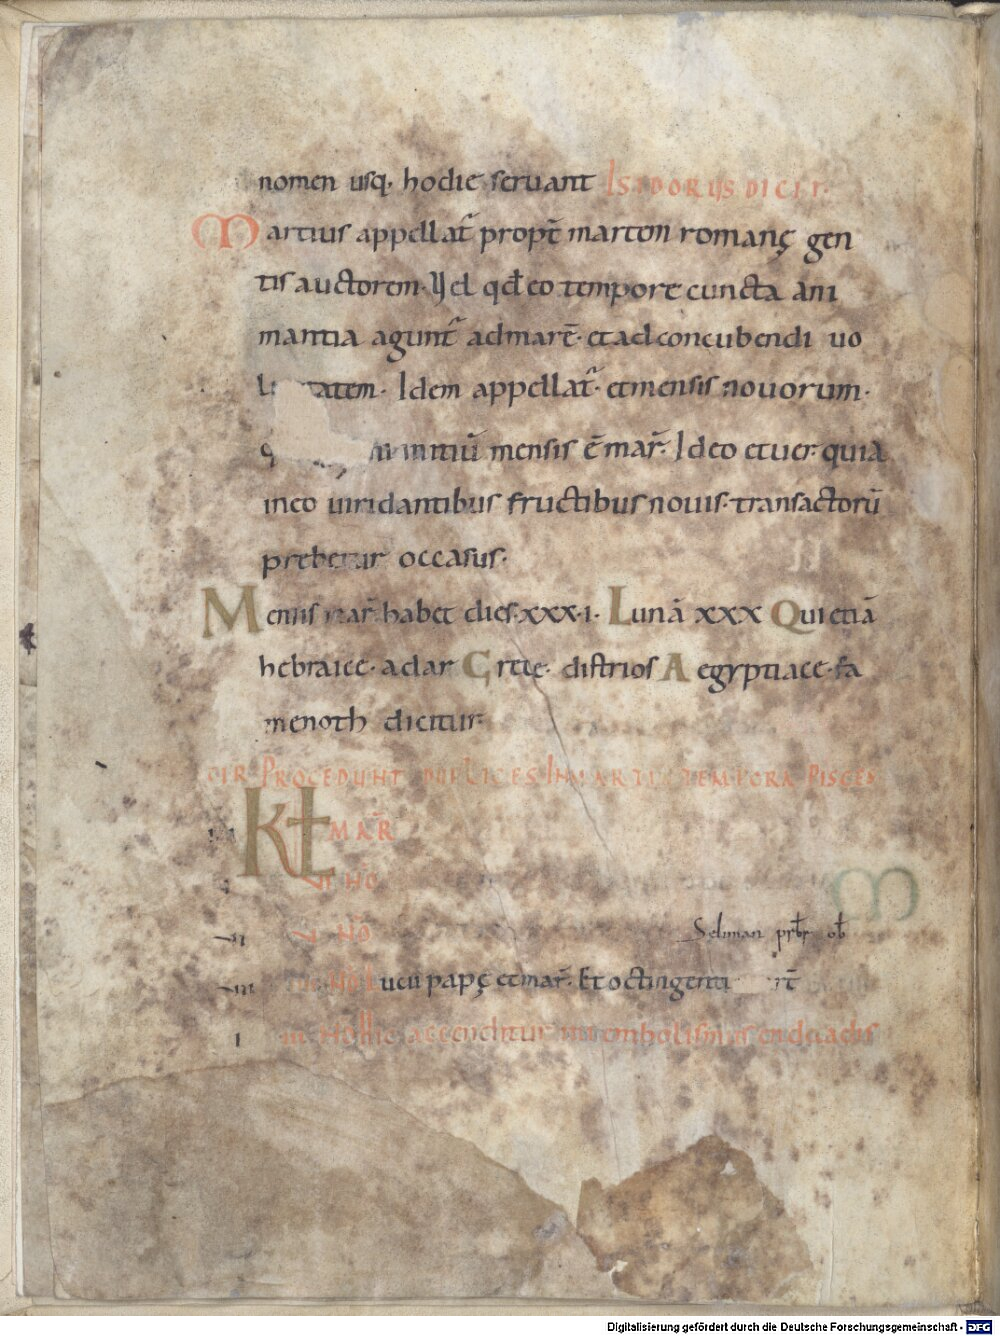 nomen usq. hodie seruant ISIDORUS DICIT.
Martius appellat̃ propt̃ martem romanę gen
tis auctorem. Vel qđ eo tempore cuncta ani
mantia agunt̃ admarẽ. et ad concubendi uo
tatem. Idem appellat̃. et mensis nouorum.
initiũ mensis ẽ mar̃. Ideo et uer quia
in eo uiridantibus fructibus nouis. transactorũ
prebetur occasus.
Mensis mar̃ habet dies. xxx.i. Lunã xxx Qui etiã
hebraice. adar Grece. distrios Aegyptiace. fa
menoth dicitur.
PROCEDUNT DUPLICES IN MARTIA TEMPORA PISCES
KL MAR̃
VI NO
V NO
Seliman pr̃br ob̃
NO Lucii papę et mar̃. Et octingenti
III NO Hic accenditur embolismus